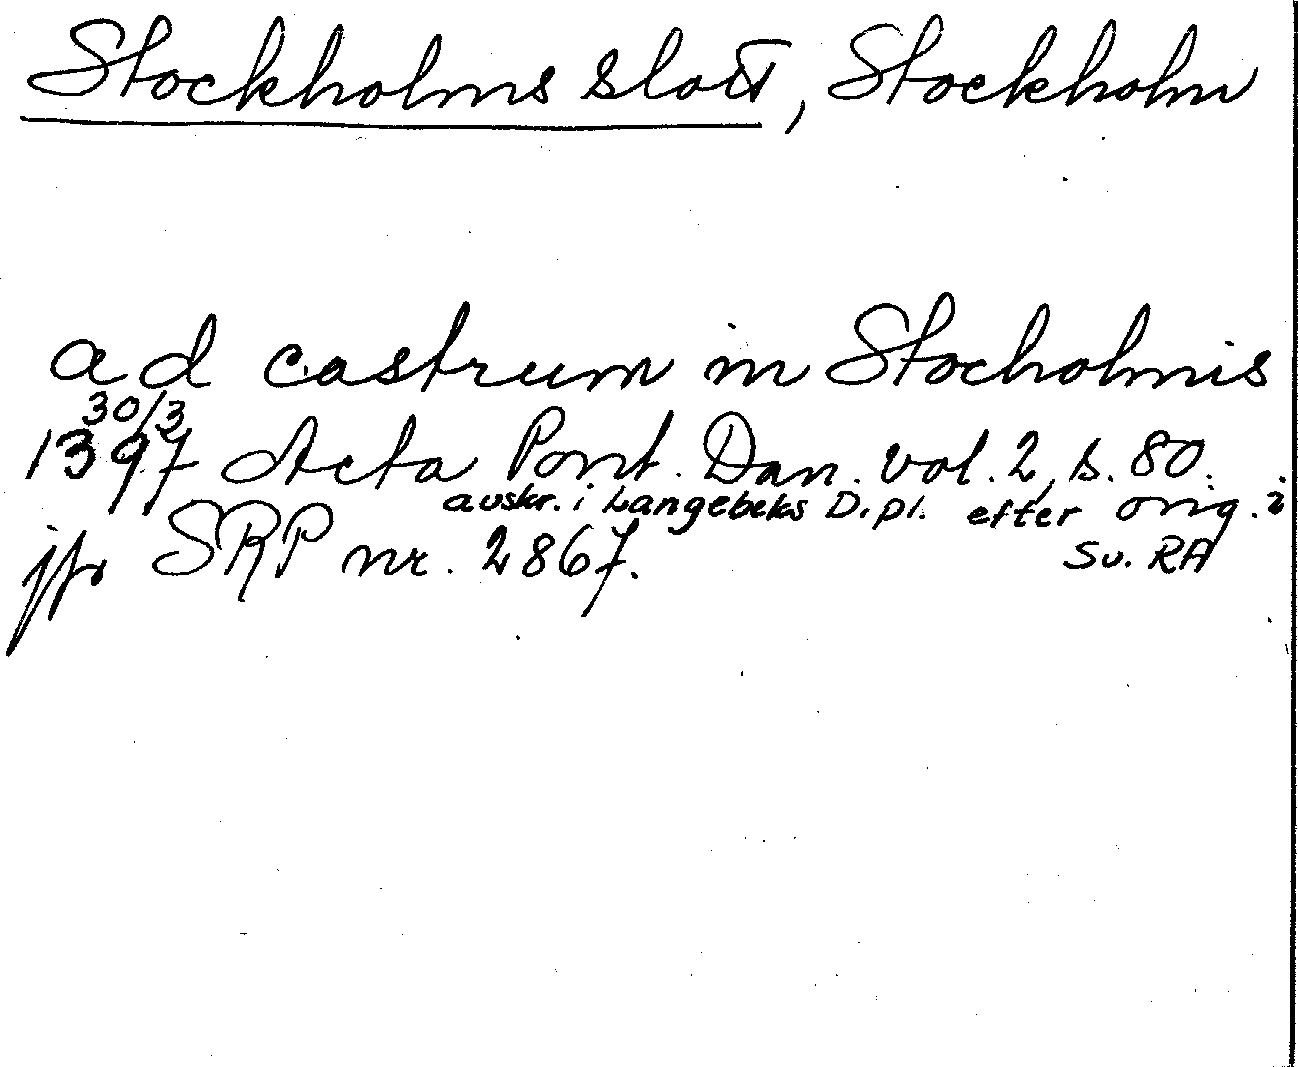 Stockholms slott, Stockholm
ad castrum in Stocholmis
30/3
1397 Acta Pont. Dan. vol. 2, s. 80.
avskr. i Langebeks Dipl. efter orig. i
Sv. RA
jfr SRP nr. 2867.